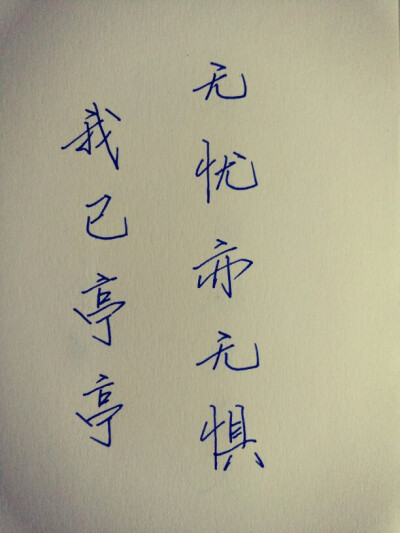 我已亭亭
无忧亦无惧